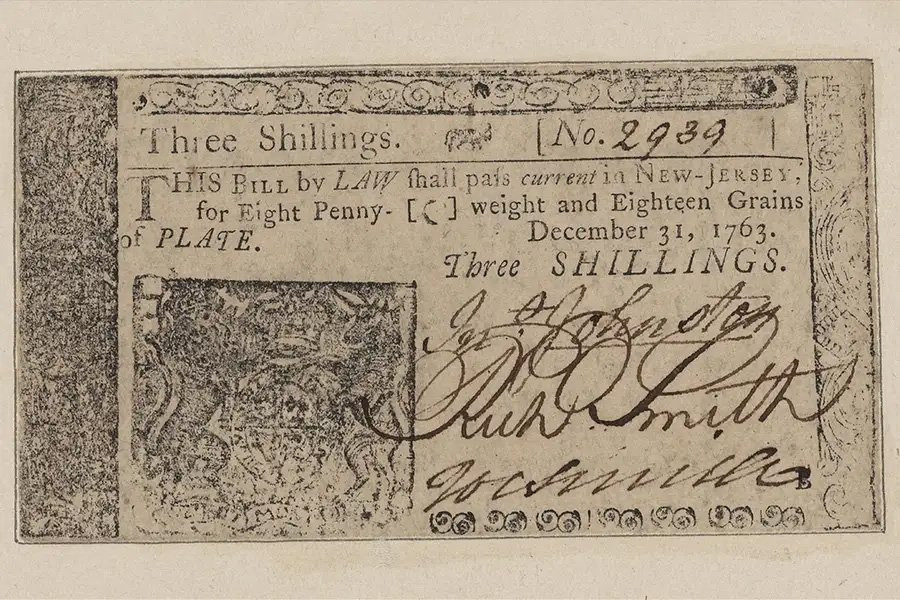 Three Shillings. [No. 2939 ]
THIS BILL by LAW ſhall paſs current in NEW-JERSEY,
for Eight Penny- [ ] weight and Eighteen Grains
of PLATE. December 31, 1763.
Three SHILLINGS.
Jn.º Johnston
Rich.d Smith
B